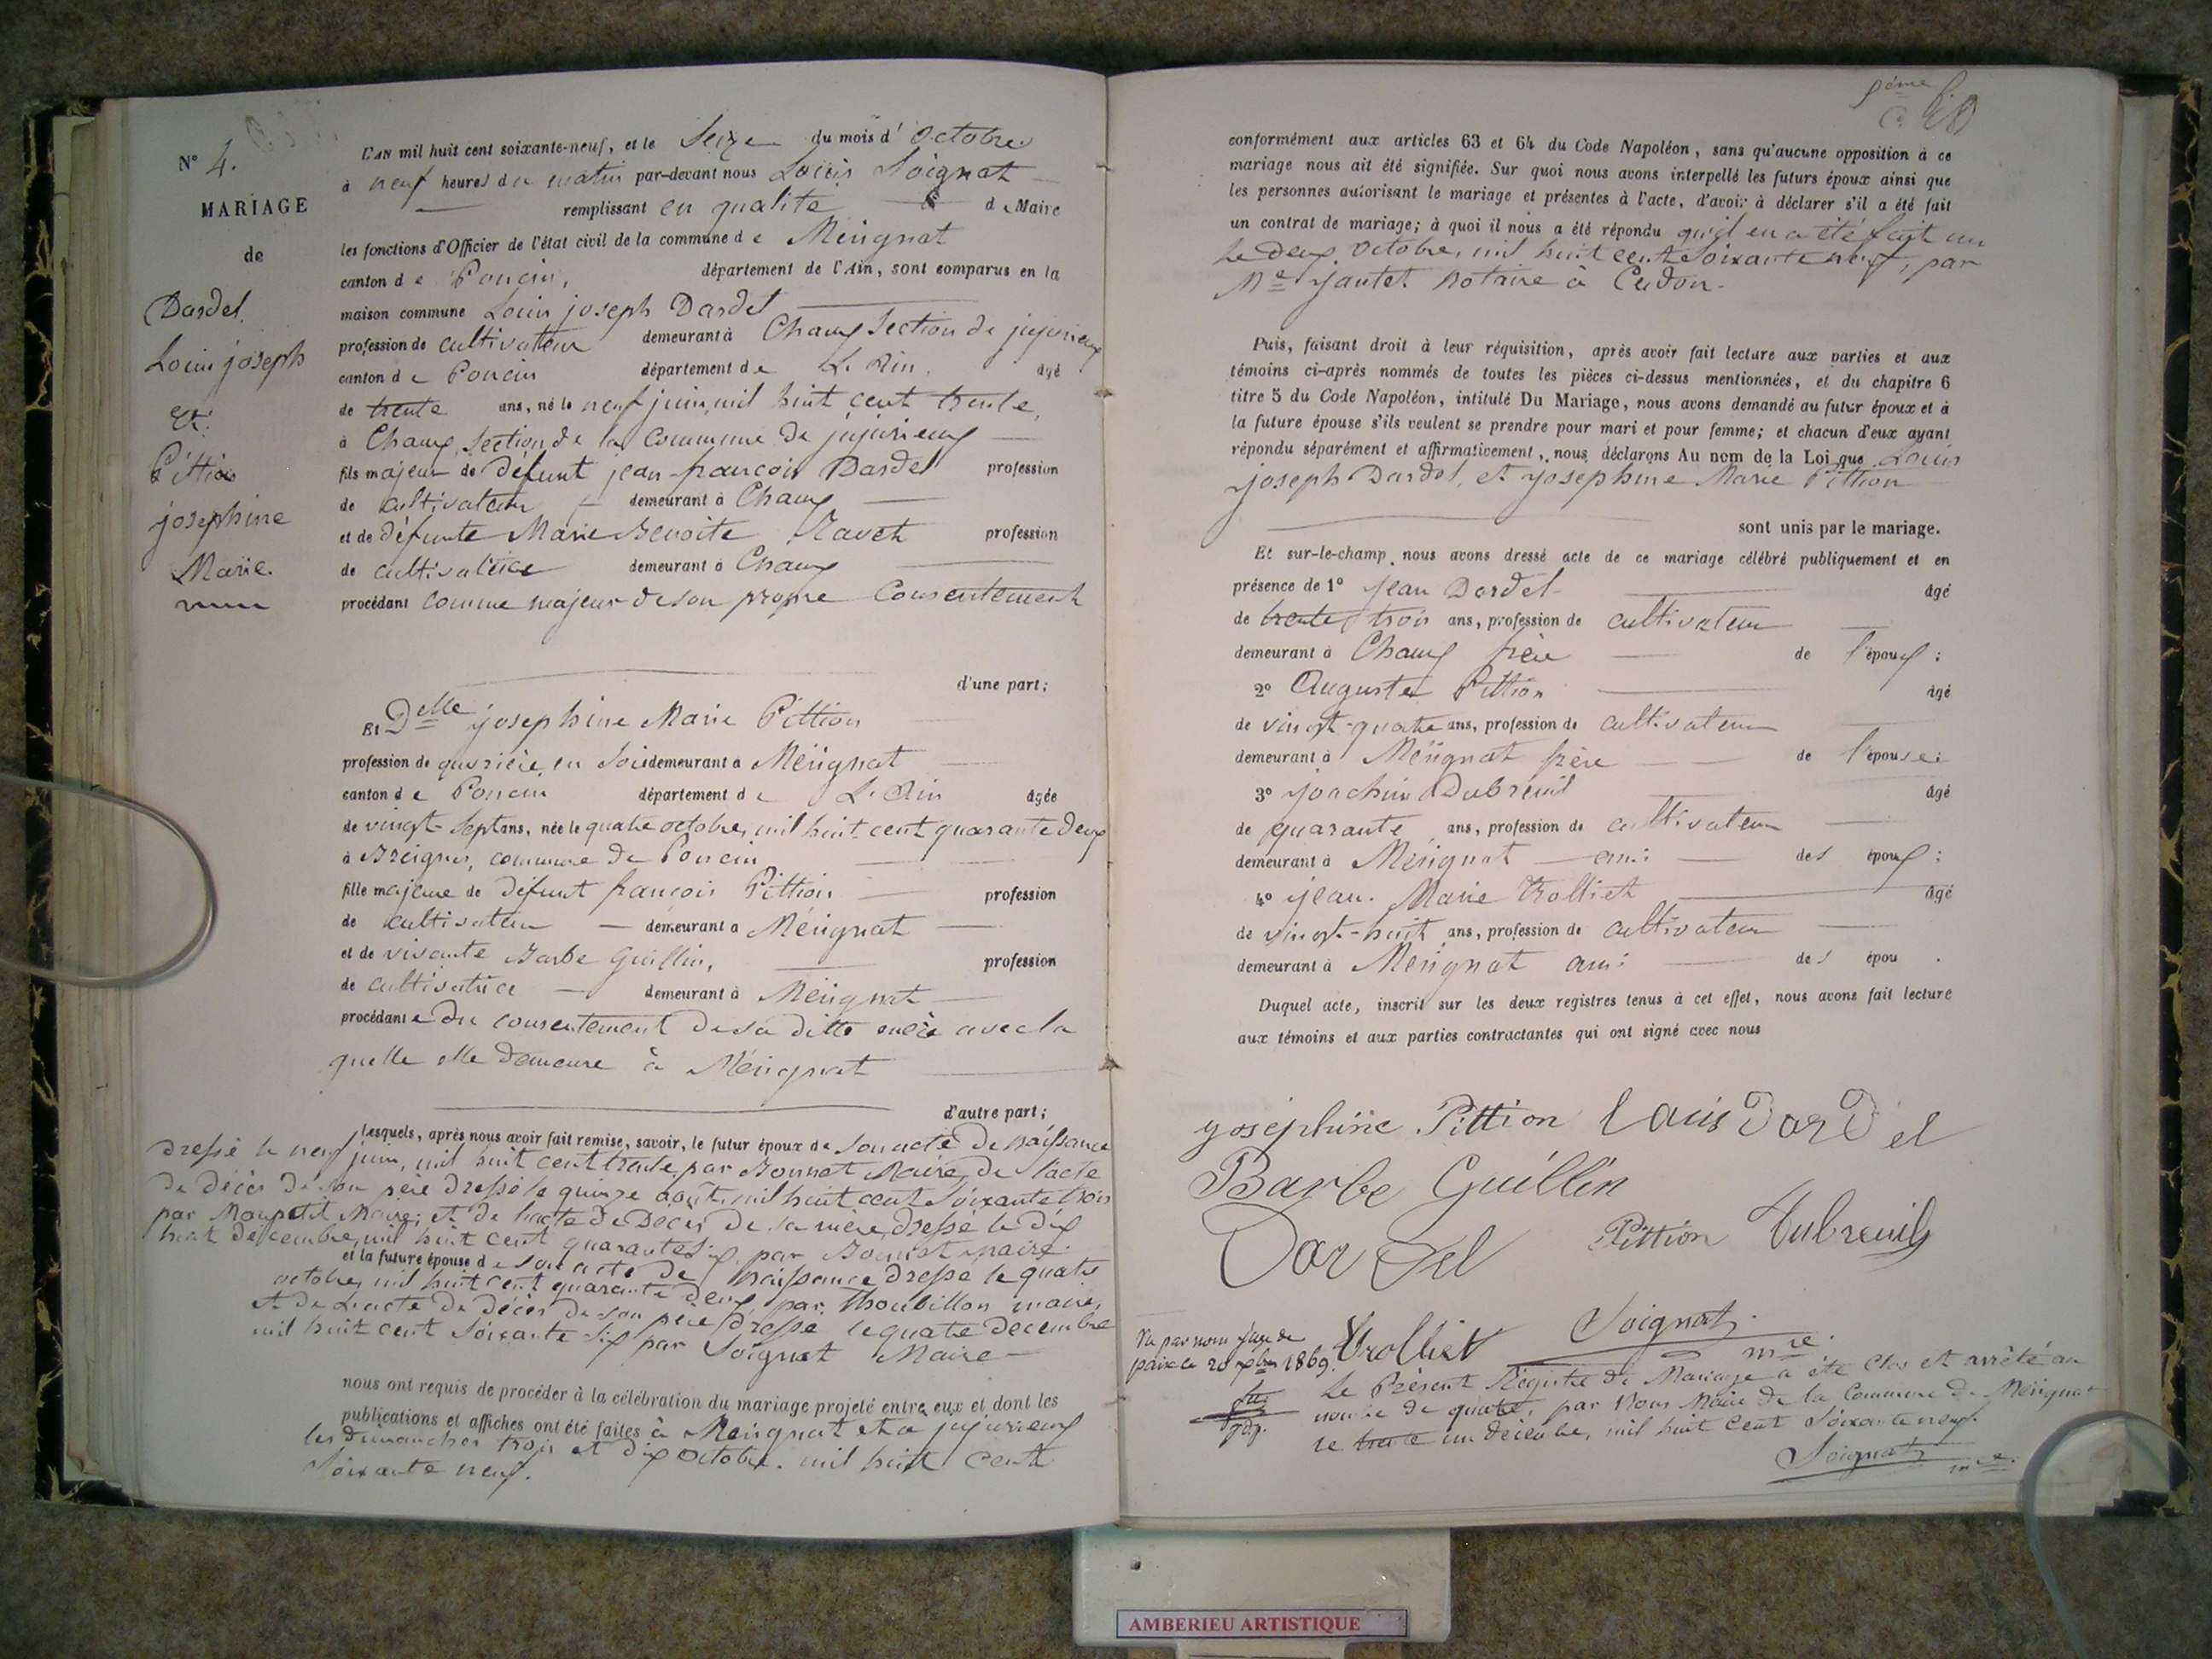 N° 4.
MARIAGE
de
Dardel
Louis joseph
&
Pittion
josephine
Marie.
L'AN mil huit cent soixante-neuf, et le Seize du mois d'octobre
à neuf heures du matin par-devant nous Louis Soignat
remplissant en qualité de Maire
les fonctions d'Officier de l'état civil de la commune de Mérignat
canton de Poncin, département de l'Ain, sont comparus en la
maison commune Louis joseph Dardel
profession de cultivateur demeurant à Chaux Section de jujurieux
canton de Poncin département de L'Ain. âgé
de trente ans, né le neuf juin, mil huit cent trente,
à Chaux, Section de la Commune de jujurieux
fils majeur de défunt jean-françois Dardel profession
de cultivateur demeurant à Chaux
et de défunte Marie Benoite Ravet profession
de cultivatrice demeurant à Chaux
procédant comme majeur de son propre Consentement
d'une part;
Et Delle josephine Marie Pittion
profession de ouvrière en Soie demeurant à Mérignat
canton de Poncin département de L'Ain âgée
de vingt-Sept ans, née le quatre octobre, mil huit cent quarante deux
à Breignes, commune de Poncin
fille majeure de défunt françois Pittion profession
de cultivateur demeurant à Mérignat
et de vivante Barbe Guillin, profession
de cultivatrice demeurant à Mérignat
procédante du consentement de sa ditte mère avec la
quelle elle demeure à Mérignat
d'autre part;
Lesquels, après nous avoir fait remise, savoir, le futur époux de Son acte de naissance
dressé le neuf juin, mil huit cent trente, par Bonnet Maire, de l'acte
de décès de son père dressé le quinze août, mil huit cent Soixante trois
par Maupetit Maire; et de l'acte de Décès de sa mère, dressé le dix
huit décembre, mil huit cent quarante Six par Bonnet maire.
et la future épouse de son acte de naissance dressé le quatre
octobre, mil huit cent quarante deux par Thoubillon maire,
et de L'acte de décès de son père dressé le quatre decembre
mil huit cent Soixante Six par Soignat Maire
nous ont requis de procéder à la célébration du mariage projeté entre eux et dont les
publications et affiches ont été faites à Mérignat et à jujurieux
les dimanches trois et dix octobre. mil huit cent
Soixante neuf.
conformément aux articles 63 et 64 du Code Napoléon, sans qu'aucune opposition à ce
mariage nous ait été signifiée. Sur quoi nous avons interpellé les futurs époux ainsi que
les personnes autorisant le mariage et présentes à l'acte, d'avoir à déclarer s'il a été fait
un contrat de mariage; à quoi il nous a été répondu qu'il en a été fait un
Le deux octobre, mil huit cent Soixante neuf, par
Me Jantet notaire à Cerdon.
Puis, faisant droit à leur réquisition, après avoir fait lecture aux parties et aux
témoins ci-après nommés de toutes les pièces ci-dessus mentionnées, et du chapitre 6
titre 5 du Code Napoléon, intitulé Du Mariage, nous avons demandé au futur époux et à
la future épouse s'ils veulent se prendre pour mari et pour femme; et chacun d'eux ayant
répondu séparément et affirmativement, nous déclarons Au nom de la Loi que Louis
joseph Dardel, et josephine Marie Pittion
sont unis par le mariage.
Et sur-le-champ nous avons dressé acte de ce mariage célébré publiquement et en
présence de 1° jean Dardel âgé
de trente trois ans, profession de cultivateur
demeurant à Chaux frère de l'époux;
2° Auguste Pittion âgé
de vingt-quatre ans, profession de cultivateur
demeurant à Mérignat frère de l'épouse;
3° joachim Dubreuil âgé
de quarante ans, profession de cultivateur
demeurant à Mérignat ami des époux;
4° jean Marie Trolliet âgé
de vingt-huit ans, profession de cultivateur
demeurant à Mérignat ami des épou.
Duquel acte, inscrit sur les deux registres tenus à cet effet, nous avons fait lecture
aux témoins et aux parties contractantes qui ont signé avec nous
joséphine Pittion Louis Dardel
Barbe Guillin
Dardel Pittion Dubreuil
Trolliet Soignat mre.
Vu par nous Juge de
paix le 20 xbre 1869.
Le Présent Régistre de Mariage a été Clos et arrêté au
nombre de quatre, par Nous Maire de la Commune de Mérignat
le trente un décembre, mil huit cent Soixante neuf.
Soignat mre.
AMBERIEU ARTISTIQUE